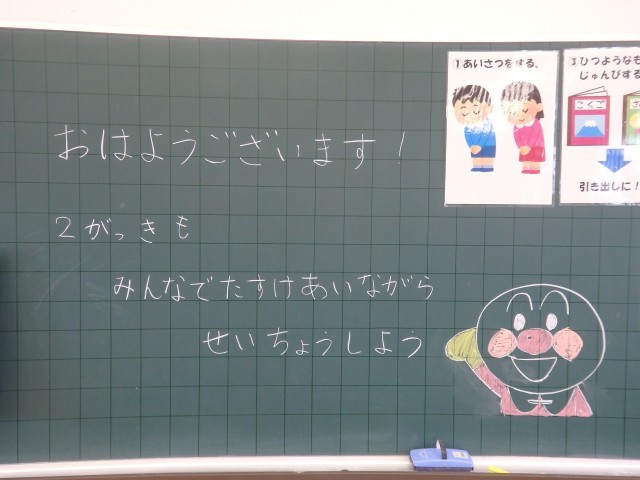 おはようございます！
2がっきも
みんなでたすけあいながら
せいちょうしよう
①あいさつをする。
③ひつようなも
じゅんびする
こくご
さ
引き出しに！